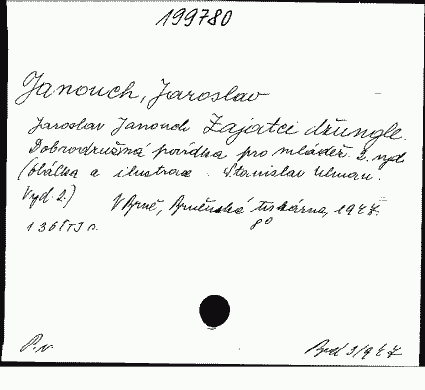 199780
Janouch, Jaroslav
Jaroslav Janouch Zajatci džungle.
Dobrodružná povídka pro mládež. 2. vyd.
(Obálka a ilustrace. Stanislav Ulman.
Vyd. 2.) V Brně, Brněnská tiskárna, 1947.
8°
136
P. v. 3/947